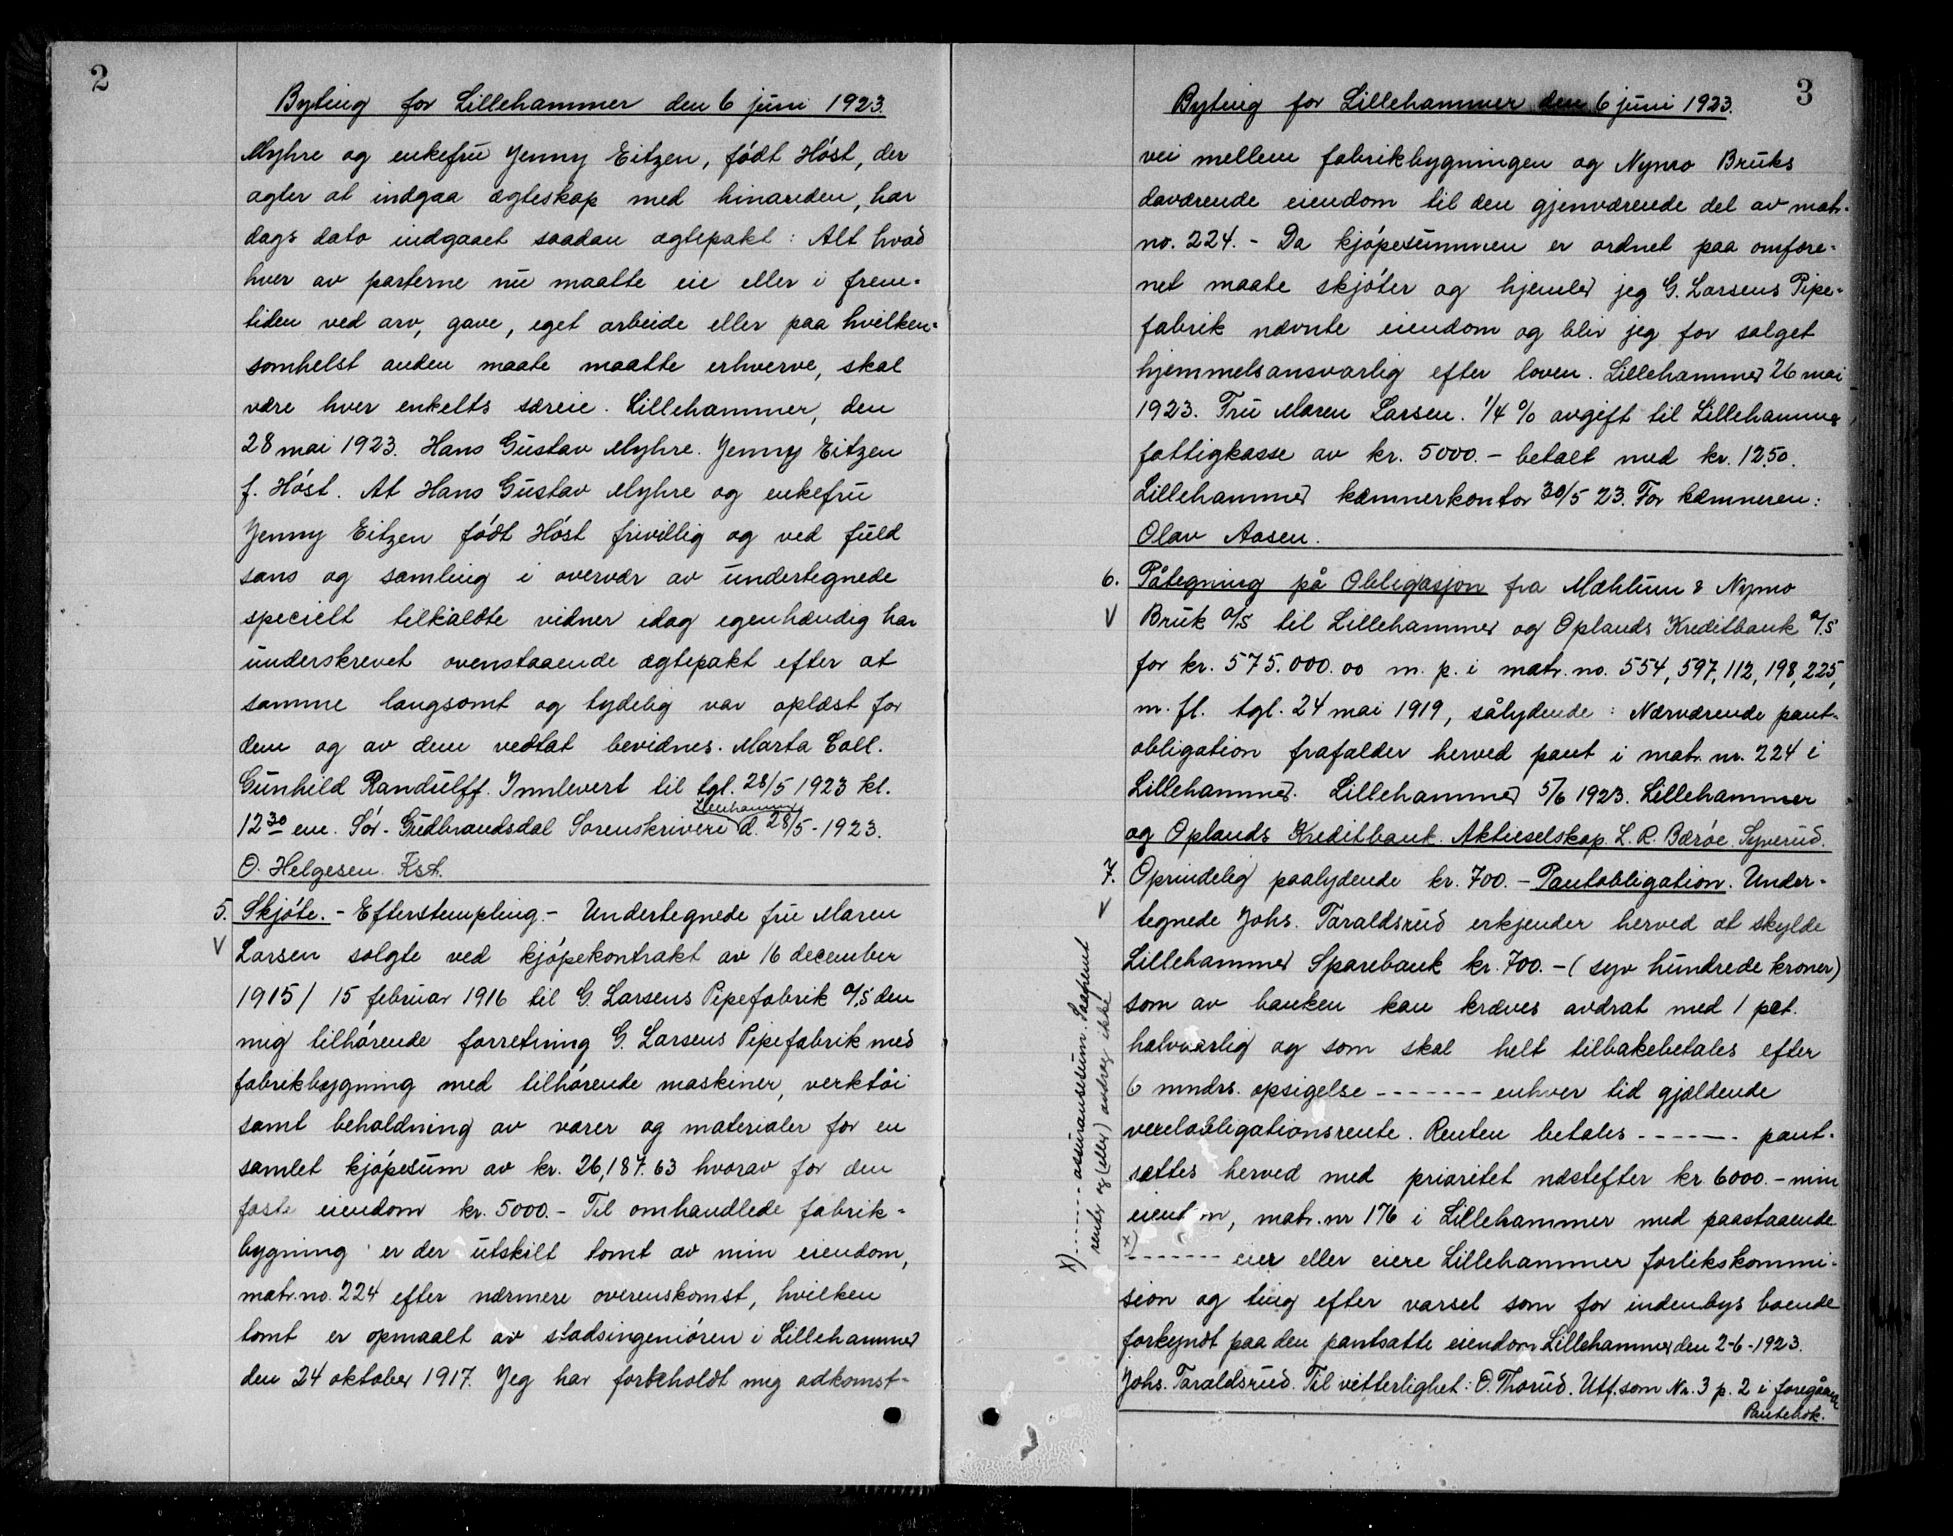 2
Byting for Lillehammer den 6 juni 1923.
Myhre og enkefru Jenny Eitzen, født Høst, der
agter at indgaa ægteskap med hinanden, har
dags dato indgaaet saadan ægtepakt: Alt hvad
hver av parterne nu maatte eie eller i frem-
tiden ved arv, gave, eget arbeide eller paa hvilken-
somhelst anden maate maatte erhverve, skal
være hver enkelts særeie. Lillehammer, den
28 mai 1923. Hans Gustav Myhre. Jenny Eitzen
f. Høst. At Hans Gustav Myhre og enkefru
Jenny Eitzen født Høst frivillig og ved fuld
sans og samling i overvær av undertegnede
specielt tilkaldte vidner idag egenhændig har
underskrevet ovenstaaende ægtepakt efter at
samme langsomt og tydelig var oplæst for
dem og av dem vedtat bevidnes. Marta Coll.
Gunhild Randulff. Innlevert til tgl. 28/5 1923 kl.
12 30 em. Sør-Gudbrandsdal Sorenskriveri Lillehammer d. 28/5-1923.
O. Helgesen. Kst.
5. Skjøte. - Efterstempling. - Undertegnede fru Maren
V Larsen solgte ved kjøpekontrakt av 16 december
1915/ 15 februar 1916 til G. Larsens Pipefabrik A/S den
mig tilhørende forretning G. Larsens Pipefabrik med
fabrikbygning med tilhørende maskiner, verktøi
samt beholdning av varer og materialer for en
samlet kjøpesum av kr. 26,187.63 hvorav for den
faste eiendom kr. 5000.- Til omhandlede fabrik-
bygning er der utskilt tomt av min eiendom,
matr.no. 224 efter nærmere overenskomst, hvilken
tomt er opmaalt av stadsingeniøren i Lillehammer
den 24 oktober 1917. Jeg har forbeholdt mig adkomst-
3
Byting for Lillehammer den 6 juni 1923.
vei mellem fabrikbygningen og Nymo Bruks
daværende eiendom til den gjenværende del av matr.
no. 224. - Da kjøpesummen er ordnet paa omfore-
net maate skjøter og hjemler jeg G. Larsens Pipe-
fabrik nævnte eiendom og blir jeg for salget
hjemmelsansvarlig efter loven. Lillehammer 26 mai
1923. Fru Maren Larsen. 1/4 % avgift til Lillehammer
fattigkasse av kr. 5000.- betalt med kr. 12.50.
Lillehammer kæmnerkontor 30/5 23. For kæmneren:
Olav Aasen.
6. Påtegning på Obligasjon fra Mæhlum & Nymo
V Bruk A/S til Lillehammer og Oplands Kreditbank A/S
for kr. 575.000.00 m. p. i matr. no. 554, 597, 112, 198, 225,
m. fl. tgl. 24 mai 1919, sålydende: Nærværende pant-
obligation frafalder herved pant i matr. nr. 224 i
Lillehammer. Lillehammer 5/6 1923. Lillehammer
og Oplands Kreditbank Aktieselskap. L. R. Bærøe. Syverud.
7. Oprindelig paalydende kr. 700.- Pantobligation. Under-
V tegnede Johs. Taraldsrud erkjender herved at skylde
Lillehammer Sparebank kr. 700.- (syv hundrede kroner)
som av banken kan kræves avdrat med 1 pct.
halvaarlig og som skal helt tilbakebetales efter
6 mndrs. opsigelse ------- enhver tid gjældende
vexelobligationsrente. Renten betales ------ pant-
sættes herved med prioritet næstefter kr 6000.- min
eiendom, matr. nr 176 i Lillehammer med paastaaende
x) ------- eier eller eiere Lillehammer forlikskommi-
sion og ting efter varsel som for indenbys boende
forkyndt paa den pantsatte eiendom Lillehammer den 2-6-1923.
Johs. Taraldsrud. Til vitterlighet: O. Thorud. Utf. som Nr. 3 p. 2 i foregående
Pantebok.
x) ------- assuransesum. Saafremt
renter og (eller) avdrag ikke